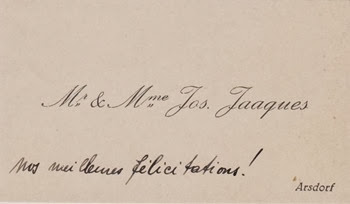 Mr & Mme Jos. Jaaques
Nos meilleures félicitations!
Arsdorf